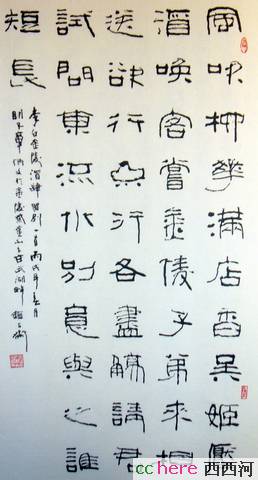 風吹柳華滿店香吳姬壓
酒喚客嘗金陵子弟來相
送欲行不行各盡觴請君
試問東流水別意與之誰
短長
李白金陵酒肆留別一首丙戌年
cchere 西西河